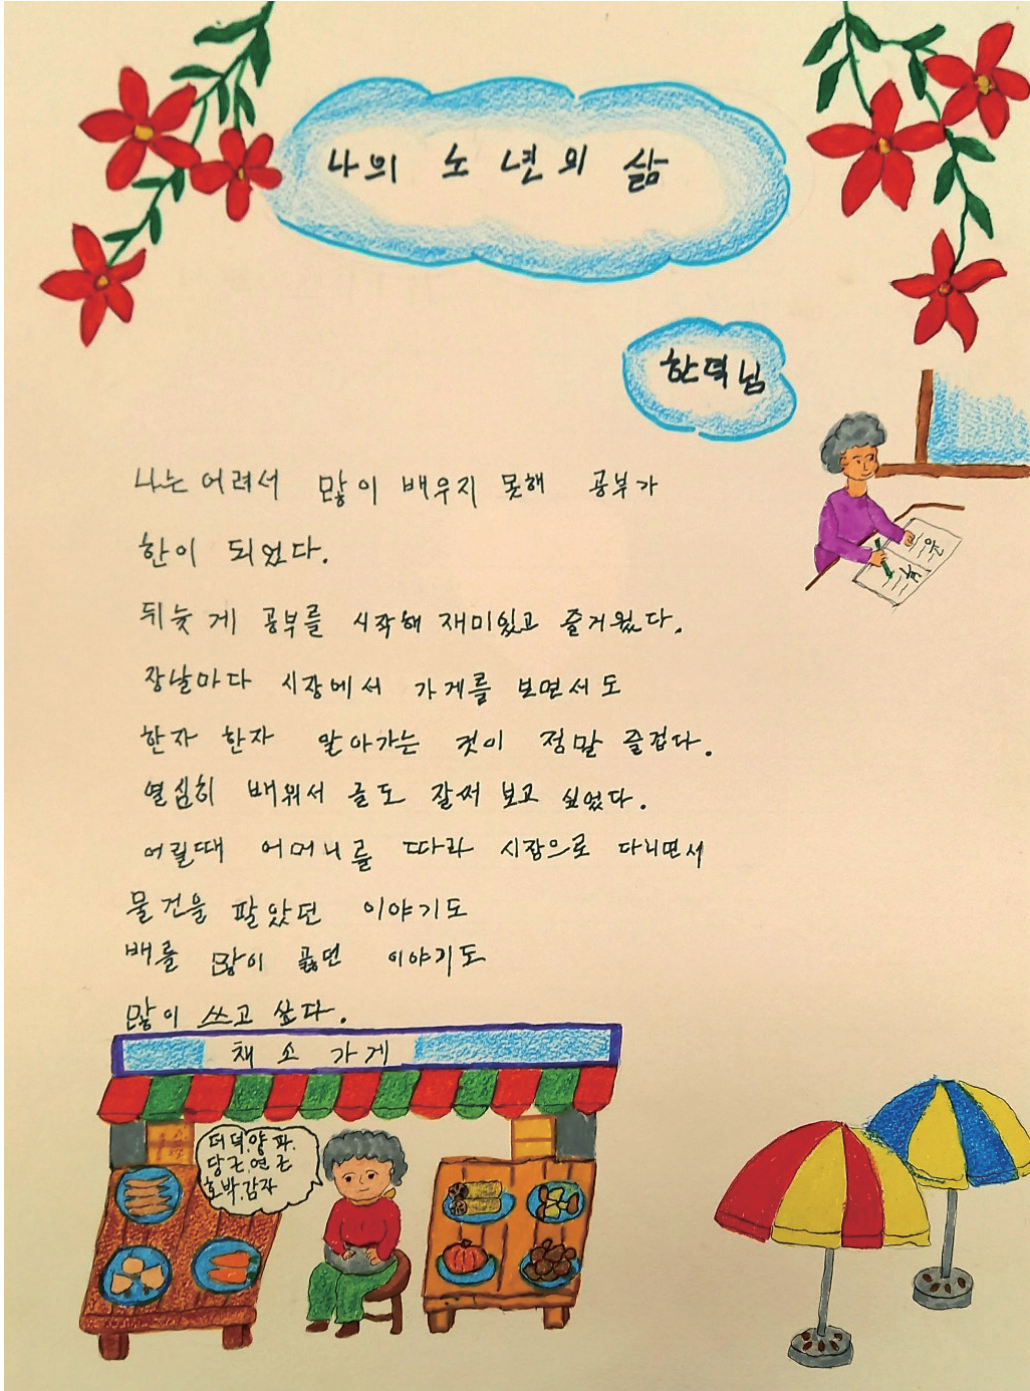 나의 노년의 삶
한덕님
나는 어려서 많이 배우지 못해 공부가
한이 되었다.
뒤늦게 공부를 시작해 재미있고 즐거웠다.
장날마다 시장에서 가게를 보면서도
한자 한자 알아가는 것이 정말 즐겁다.
열심히 배워서 글도 잘써 보고 싶었다.
어릴때 어머니를 따라 시장으로 다니면서
물건을 팔았던 이야기도
배를 많이 곯던 이야기도
많이 쓰고 싶다.
채소가게
더덕,양파,
당근,연근
호박,감자